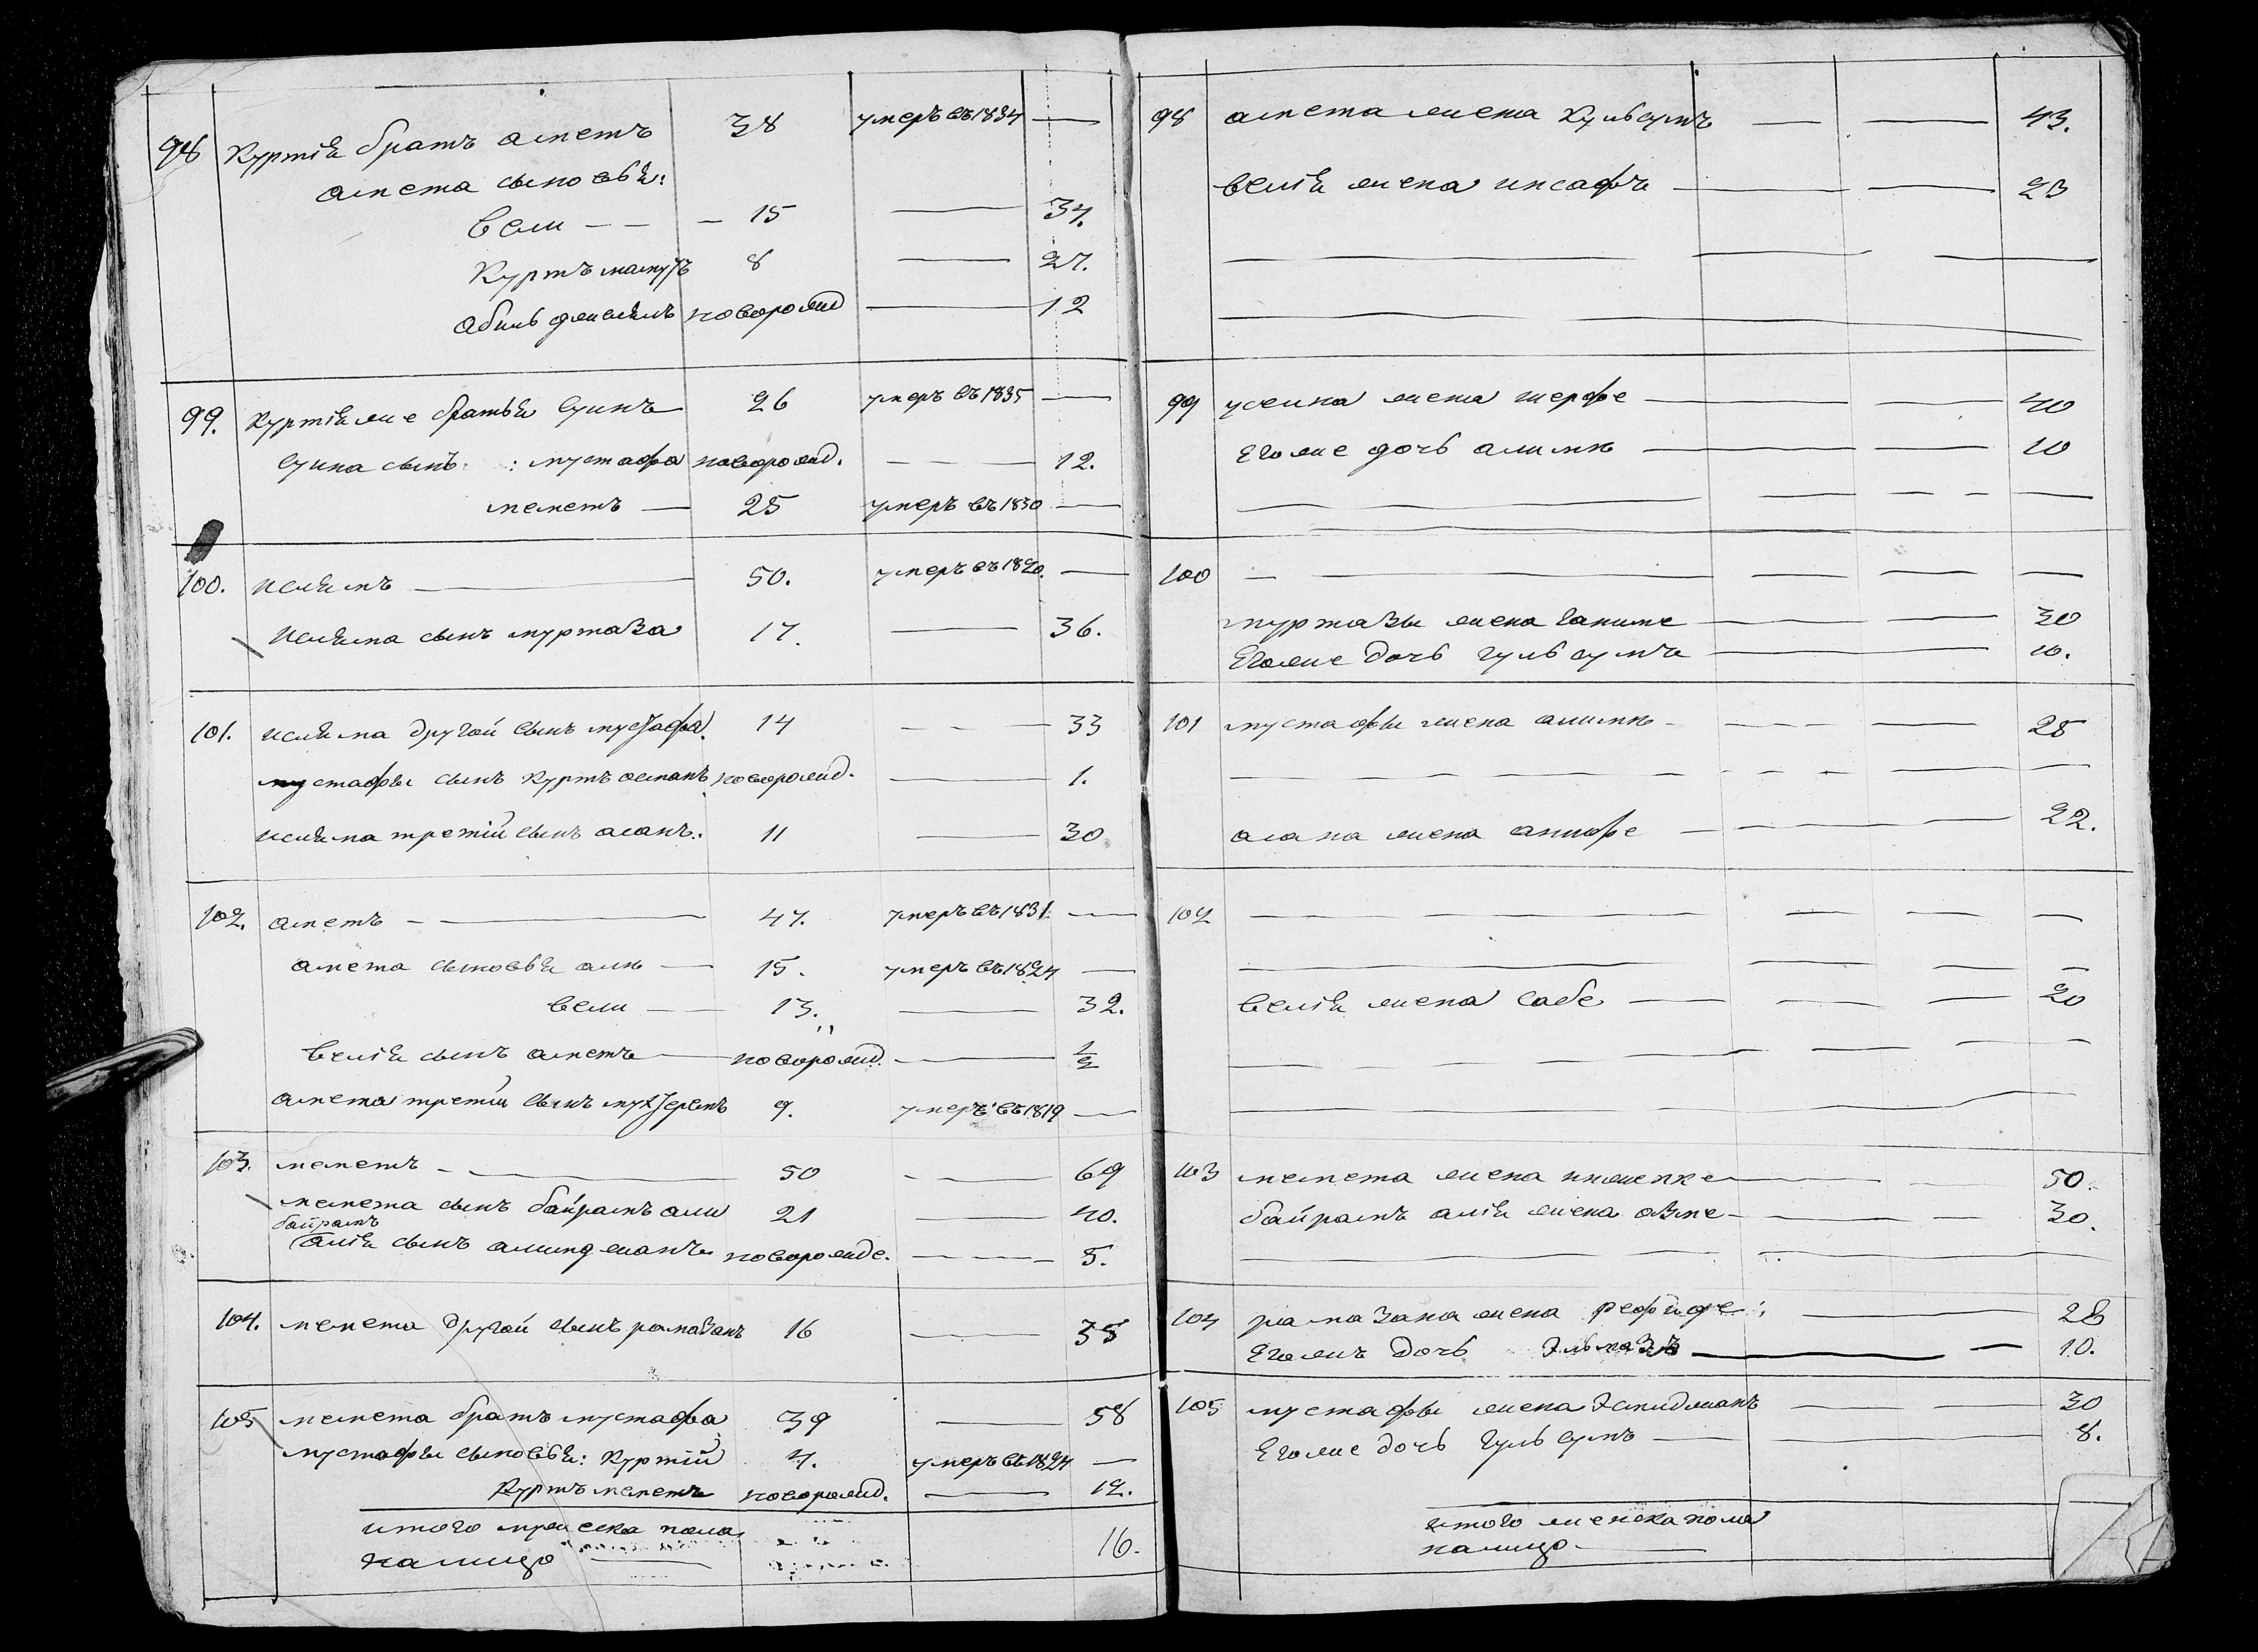 98 Куртія братъ аметъ 38 умеръ въ 1834 —
амета сыновья:
вели — — 15 — 34.
Куртъ мамутъ 8 — 27.
новорожд — 12
99. Куртія же братья Суинъ 26 умеръ въ 1835 —
Суина сынъ: мустафа новорожд. — 12.
меметъ — 25 умеръ въ 1830 —
100. ислямъ — 50. умеръ въ 1820. —
исляма сынъ муртаза 17. — 36.
101. исляма другой сынъ мустафа. 14 — 33
мустафы сынъ куртъ османъ новорожд. — 1.
исляма третій сынъ асанъ. 11 — 30
102. аметъ — 47. умеръ въ 1831 —
амета сыновья али — 15. умеръ въ 1824 —
вели — 13. — 32.
велія сынъ аметъ — новорожд. — 1/2
амета третій сынъ 9. умеръ въ 1819 —
103. меметъ — 50 — 69
мемета сынъ байрамъ али 21 — 40.
байрамъ
алія сынъ новорожде. — 5.
104. мемета другой сынъ рамазанъ 16 — 35
105 мемета братъ мустафа 39 — 58
мустафы сыновья: Куртій 7. умеръ въ 1824 —
Куртъ меметъ новорожд. — 12.
итого мужеска пола
налицо — 16.
98 амета жена Кульсумъ — — 43.
велія жена инсафъ — — 23
99 усеина жена шерфе — — 40
Его же дочь алиме — — 10
100 — — — —
муртазы жена ганиме — — 30
Его же дочь гульсумъ — 10.
101 мустафы жена алиме — — 25
асана жена анифе — — 22.
102 — — — —
велія жена сабе — — 20
103 мемета жена — 50.
байрамъ алія жена азме — — 30.
104 рамазана жена рефидже: — 28
Его же дочь Эльмазъ — 10.
105 мустафы жена — — 30
Его же дочь Гульсумъ — — 8.
итого женска пола
налицо —